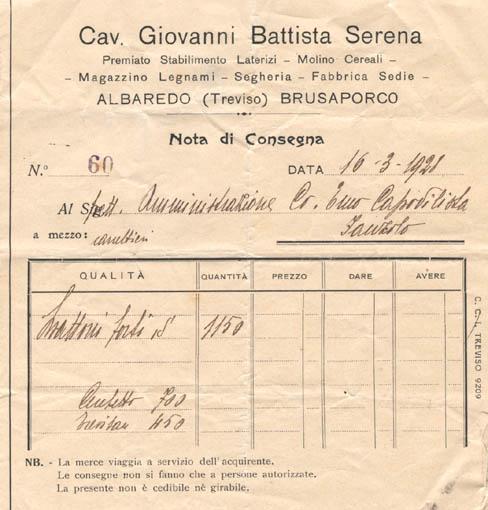 Cav. Giovanni Battista Serena
Premiato Stabilimento Laterizi – Molino Cereali –
– Magazzino Legnami – Segheria – Fabbrica Sedie –
ALBAREDO (Treviso) BRUSAPORCO
Nota di Consegna
N.° 60 DATA 16-3-1921
Al Spett. Amministrazione Co. Emo Capodilista
Fanzolo
a mezzo: carrettieri
QUALITÀ QUANTITÀ PREZZO DARE AVERE
forti 1150
700
450
NB. - La merce viaggia a servizio dell'acquirente.
Le consegne non si fanno che a persone autorizzate.
La presente non è cedibile nè girabile.
C. C. I. TREVISO 9209